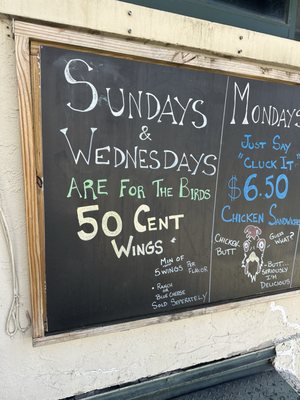 Sundays
&
Wednesdays
Are For The Birds
50 Cent
Wings *
Min of
5 Wings Per
Flavor
• Ranch
or
Blue Cheese
Sold Seperately
Mondays
Just Say
"Cluck It"
$6.50
Chicken Sandwiches
Guess
What?
Chicken
Butt
-Butt...
Seriously
I'm
Delicious